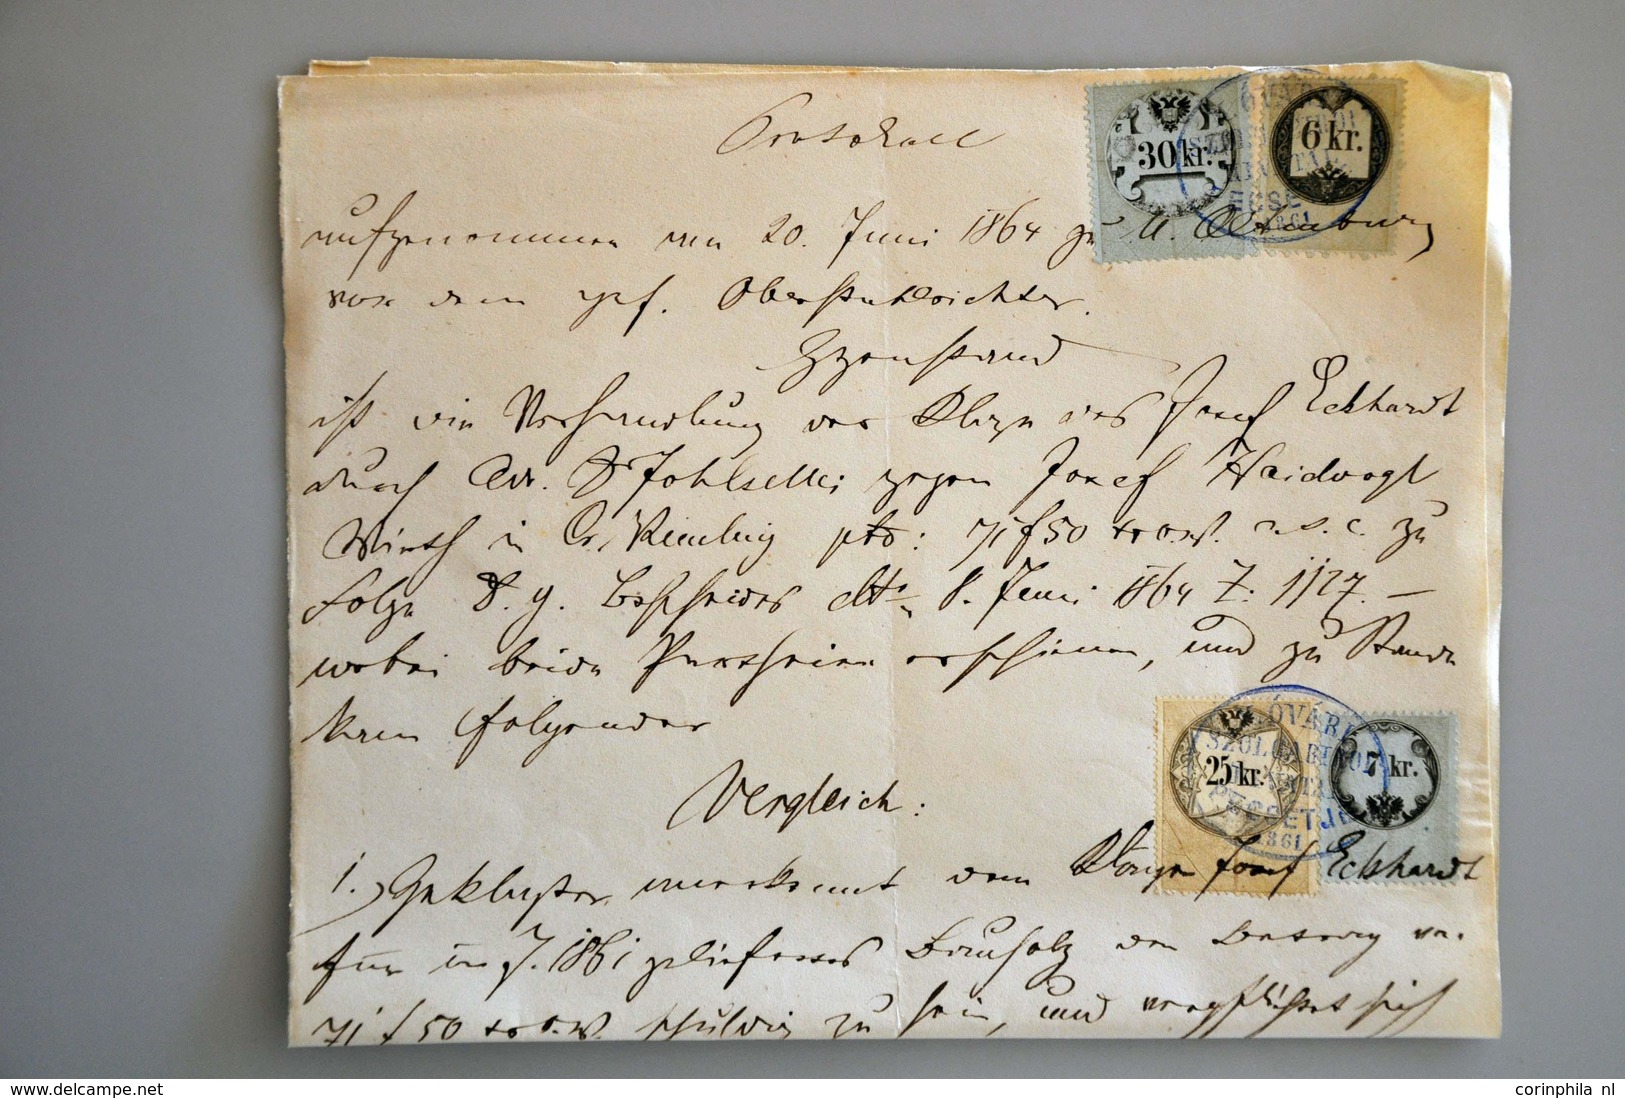 Protokoll
30 kr.
6 kr.
aufgenommen am 20. Juni 1864 zu U. Altenburg
vor dem gef. Oberstuhlrichter.
Gegenstand
ist die Verhandlung der Klage des Josef Eckhardt
durch Adv. Dr gegen Josef Haidvogl
Wirth in pto: 71 f 50 kr ö.W. c. s. c. zu
Folge d. g. Bescheides dto 8. Juni 1864 Z: 1127. –
wobei beide Partheien erschienen, und zu Stande
kam folgender
25 kr.
7 kr.
Vergleich:
1.) Geklagter anerkennt dem Kläger Josef Eckhardt
für im J. 1861 geliefertes Bauholz den Betrag von
71 f 50 kr ö.W. schuldig zu sein, und verpflichtet sich
www.delcampe.net
corinphila nl